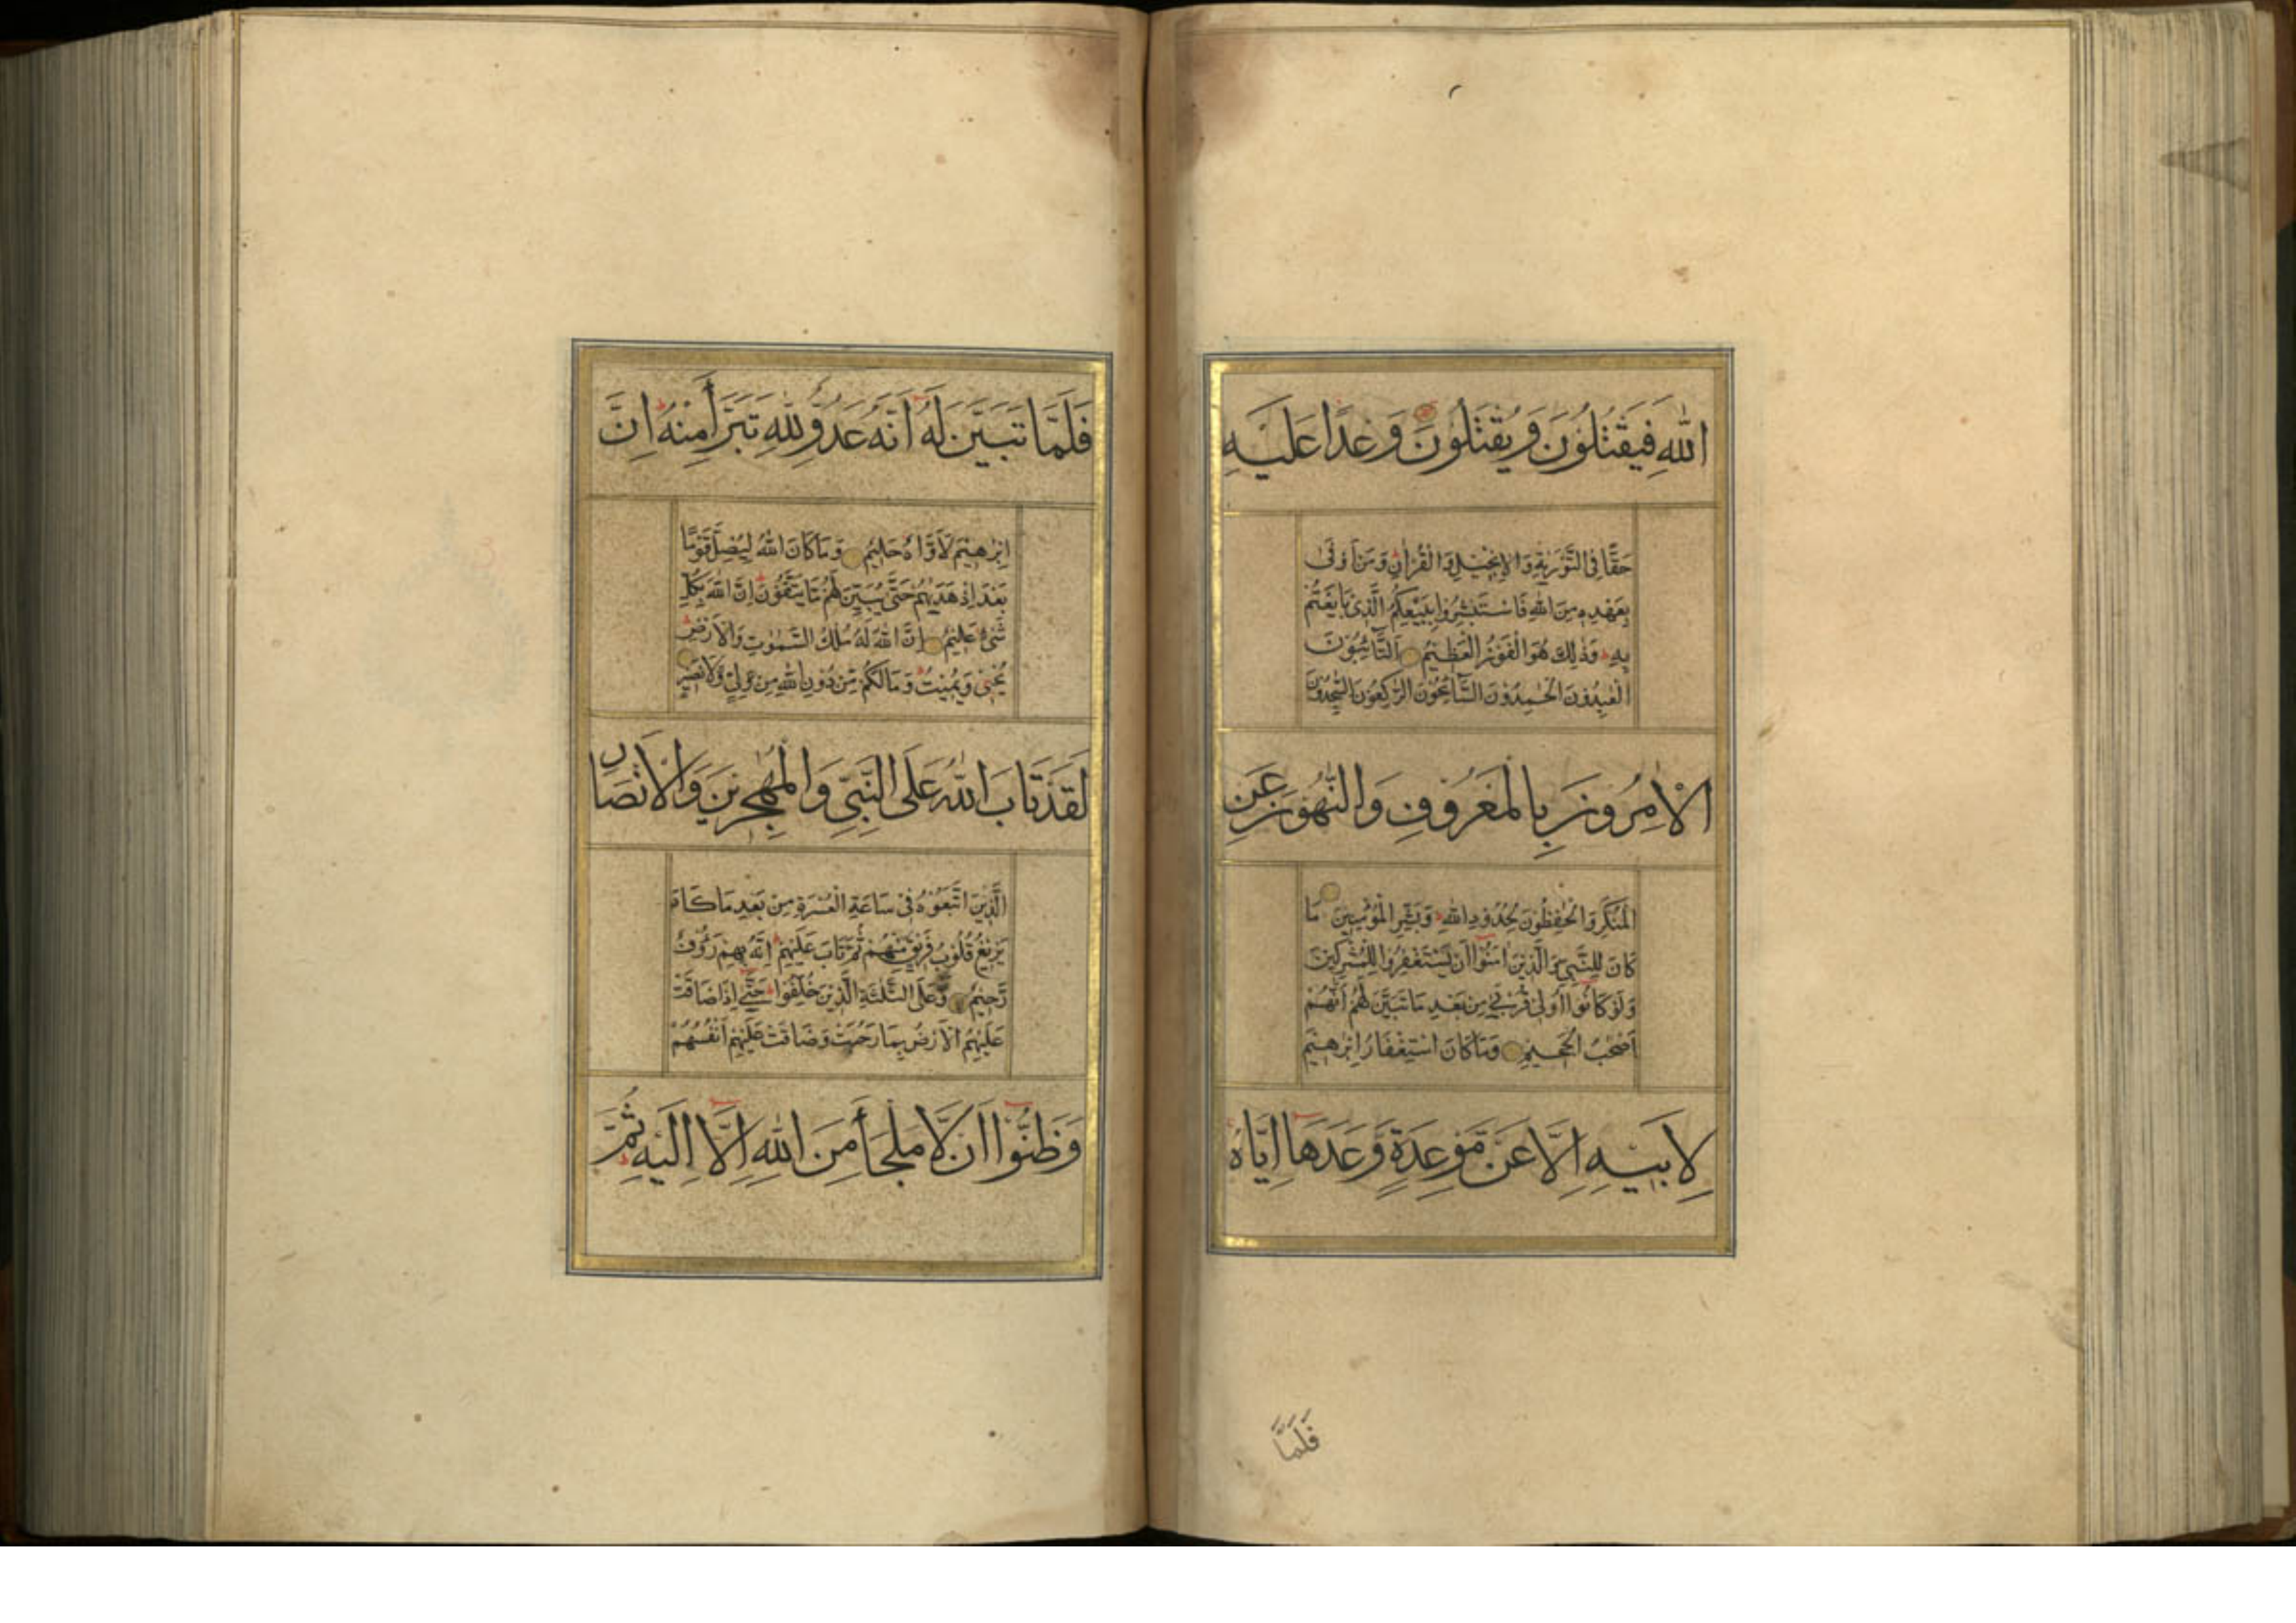 اللهِ فَيَقْتُلُونَ وَيُقْتَلُونَ وَعْدًا عَلَيْهِ
حَقًّا فِي التَّوْرٰيةِ وَالْاِنْجِيلِ وَالْقُرْاٰنِ وَمَنْ اَوْفٰى
بِعَهْدِهِ مِنَ اللهِ فَاسْتَبْشِرُوا بِبَيْعِكُمُ الَّذِي بَايَعْتُمْ
بِهِ وَذٰلِكَ هُوَ الْفَوْزُ الْعَظِيمُ اَلتَّائِبُونَ
الْعٰبِدُونَ الْحٰمِدُونَ السَّائِحُونَ الرّٰكِعُونَ السّٰجِدُونَ
الْاٰمِرُونَ بِالْمَعْرُوفِ وَالنَّاهُونَ عَنِ
الْمُنْكَرِ وَالْحٰفِظُونَ لِحُدُودِ اللهِ وَبَشِّرِ الْمُؤْمِنِينَ مَا
كَانَ لِلنَّبِيِّ وَالَّذِينَ اٰمَنُوا اَنْ يَسْتَغْفِرُوا لِلْمُشْرِكِينَ
وَلَوْ كَانُوا اُولِي قُرْبٰى مِنْ بَعْدِ مَا تَبَيَّنَ لَهُمْ اَنَّهُمْ
اَصْحٰبُ الْجَحِيمِ وَمَا كَانَ اسْتِغْفَارُ اِبْرٰهِيمَ
لِاَبِيهِ اِلَّا عَنْ مَوْعِدَةٍ وَعَدَهَا اِيَّاهُ
فَلَمَّا
فَلَمَّا تَبَيَّنَ لَهُ اَنَّهُ عَدُوٌّ لِلّٰهِ تَبَرَّأَ مِنْهُ اِنَّ
اِبْرٰهِيمَ لَاَوَّاهٌ حَلِيمٌ وَمَا كَانَ اللهُ لِيُضِلَّ قَوْمًا
بَعْدَ اِذْ هَدٰيهُمْ حَتّٰى يُبَيِّنَ لَهُمْ مَا يَتَّقُونَ اِنَّ اللهَ بِكُلِّ
شَيْءٍ عَلِيمٌ اِنَّ اللهَ لَهُ مُلْكُ السَّمٰوٰتِ وَالْاَرْضِ
يُحْيِي وَيُمِيتُ وَمَا لَكُمْ مِنْ دُونِ اللهِ مِنْ وَلِيٍّ وَلَا نَصِيرٍ
لَقَدْ تَابَ اللهُ عَلَى النَّبِيِّ وَالْمُهٰجِرِينَ وَالْاَنْصَارِ
الَّذِينَ اتَّبَعُوهُ فِي سَاعَةِ الْعُسْرَةِ مِنْ بَعْدِ مَا كَادَ
يَزِيغُ قُلُوبُ فَرِيقٍ مِنْهُمْ ثُمَّ تَابَ عَلَيْهِمْ اِنَّهُ بِهِمْ رَؤُفٌ
رَحِيمٌ وَعَلَى الثَّلٰثَةِ الَّذِينَ خُلِّفُوا حَتّٰى اِذَا ضَاقَتْ
عَلَيْهِمُ الْاَرْضُ بِمَا رَحُبَتْ وَضَاقَتْ عَلَيْهِمْ اَنْفُسُهُمْ
وَظَنُّوا اَنْ لَا مَلْجَأَ مِنَ اللهِ اِلَّا اِلَيْهِ ثُمَّ